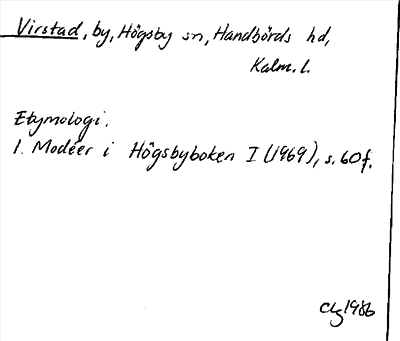 Virstad, by, Högsby sn, Handbörds hd,
Kalm. l.
Etymologi.
I. Modéer i Högsbyboken I (1969), s. 60 f.
1986